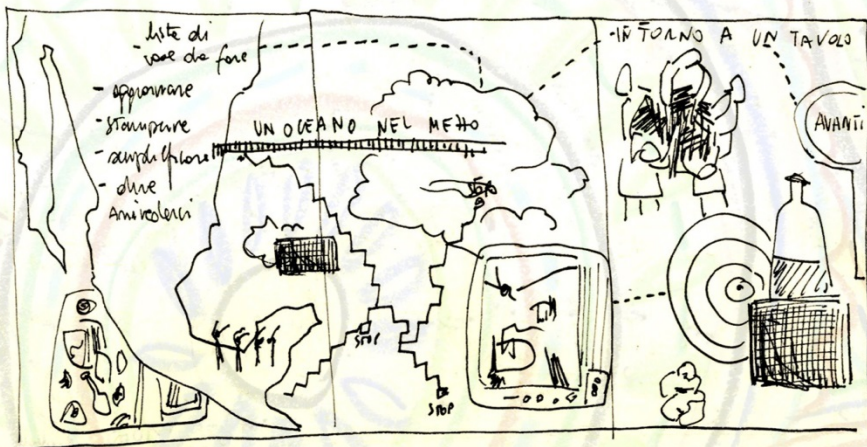 lista di
cose da fare
- approvare
- stampare
- semplificare
- dire
Arrivederci
UN OCEANO NEL MEZZO
- INTORNO A UN TAVOLO
AVANTI
STOP
STOP